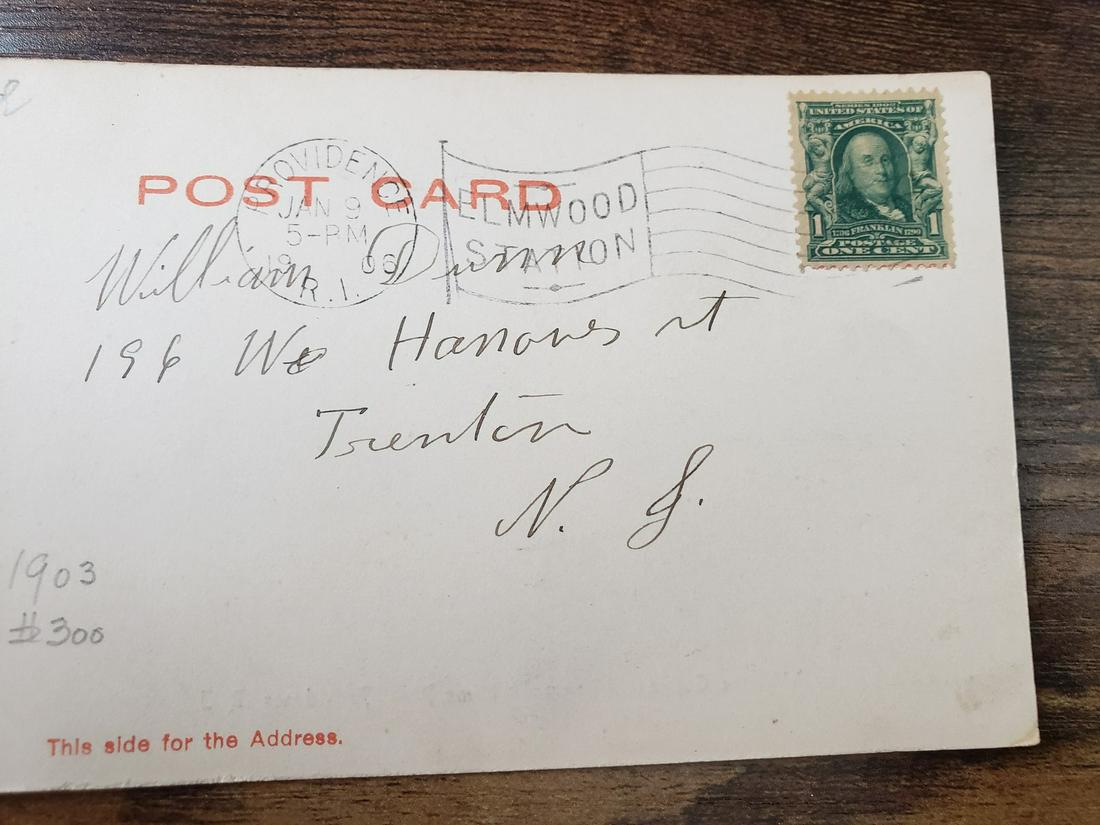 POST CARD
PROVIDENCE
JAN 9
5-PM
1906
R.I.
ELMWOOD
STATION
SERIES 1902
UNITED STATES OF
AMERICA
1 1
1706 FRANKLIN 1790
POSTAGE
ONE CENT
William Dunn
196 Hanover st
Trenton
N. J.
1903
$300
This side for the Address.